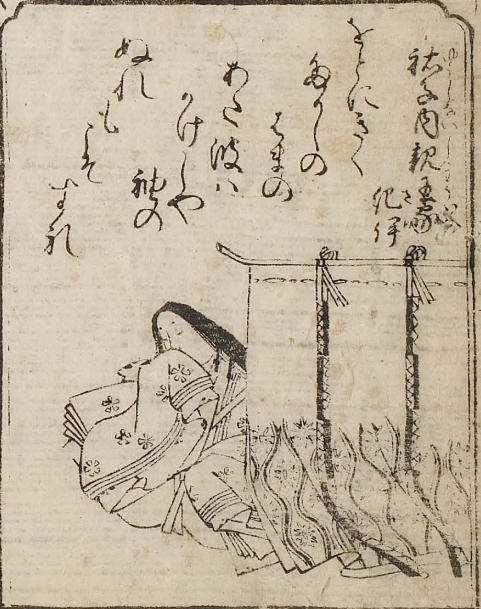 祐子内親王家
紀伊
をとにきく
たかしの
はまの
あた波ハ
かけしや
袖の
ぬれも
こそ
すれ